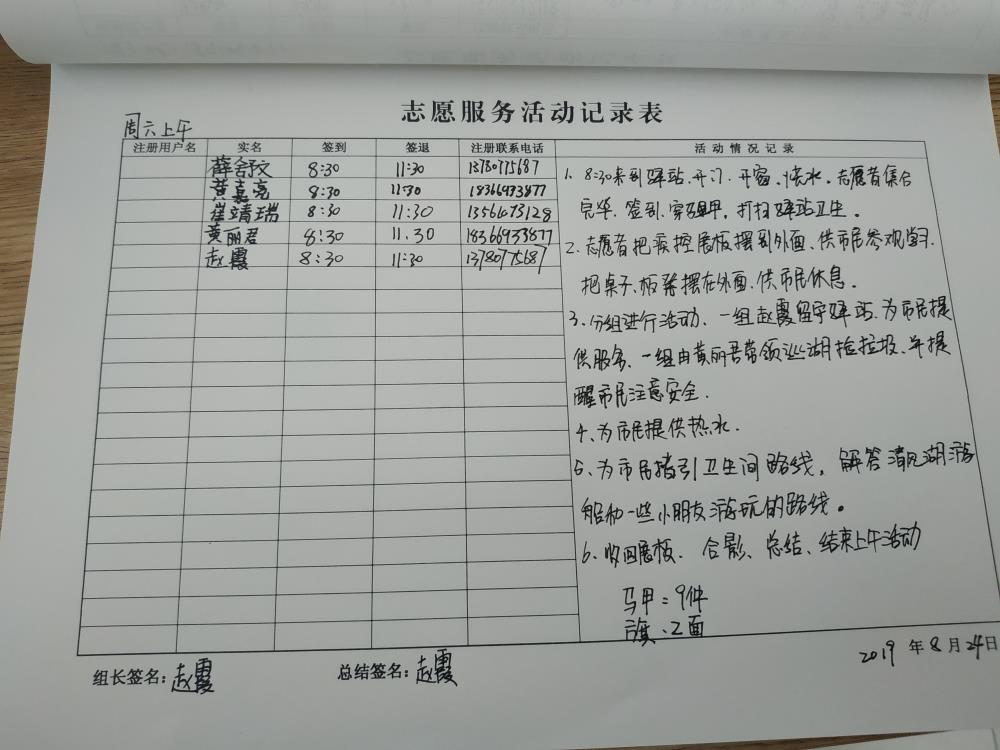 志愿服务活动记录表
周六上午
注册用户名 实名 签到 签退 注册联系电话 活动情况记录
薛舒文 8:30 11:30 13780775687
黄嘉亮 8:30 11:30 18366933877
崔靖瑞 8:30 11:30 13561073128
黄丽君 8:30 11.30 18366933877
赵霞 8:30 11:30 13780775687
1. 8:30来到驿站、开门、开窗、烧水。志愿者集合
完毕、签到、穿马甲，打扫驿站卫生。
2、志愿者把疾控展板摆到外面、供市民参观学习.
把桌子、板凳摆在外面、供市民休息.
3、分组进行活动、一组赵霞留守驿站、为市民提
供服务、一组由黄丽君带领巡湖捡垃圾、并提
醒市民注意安全.
4、为市民提供热水.
5、为市民指引卫生间路线，解答清风湖游
船和一些小朋友游玩的路线。
6、收回展板、合影、总结、结束上午活动
马甲:9件
旗:2面
2019年8月24日
组长签名:赵霞 总结签名:赵霞